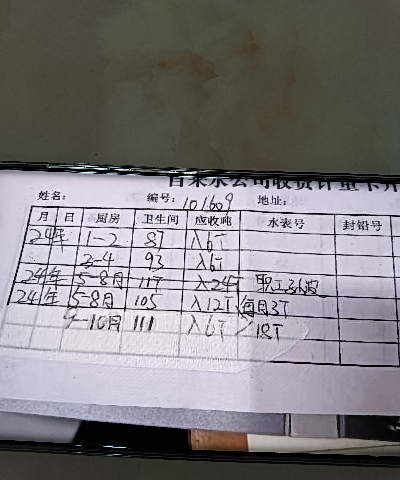 自来水公司收费计量卡片
姓名: 编号: 101609 地址:
月 日 厨房 卫生间 应收吨 水表号 封铅号
24年 1-2 87 入6T
2-4 93 入6T
24年 5-8月 117 入24T 职工
24年 5-8月 105 入12T 每月3T
9-10月 111 入6T 18T